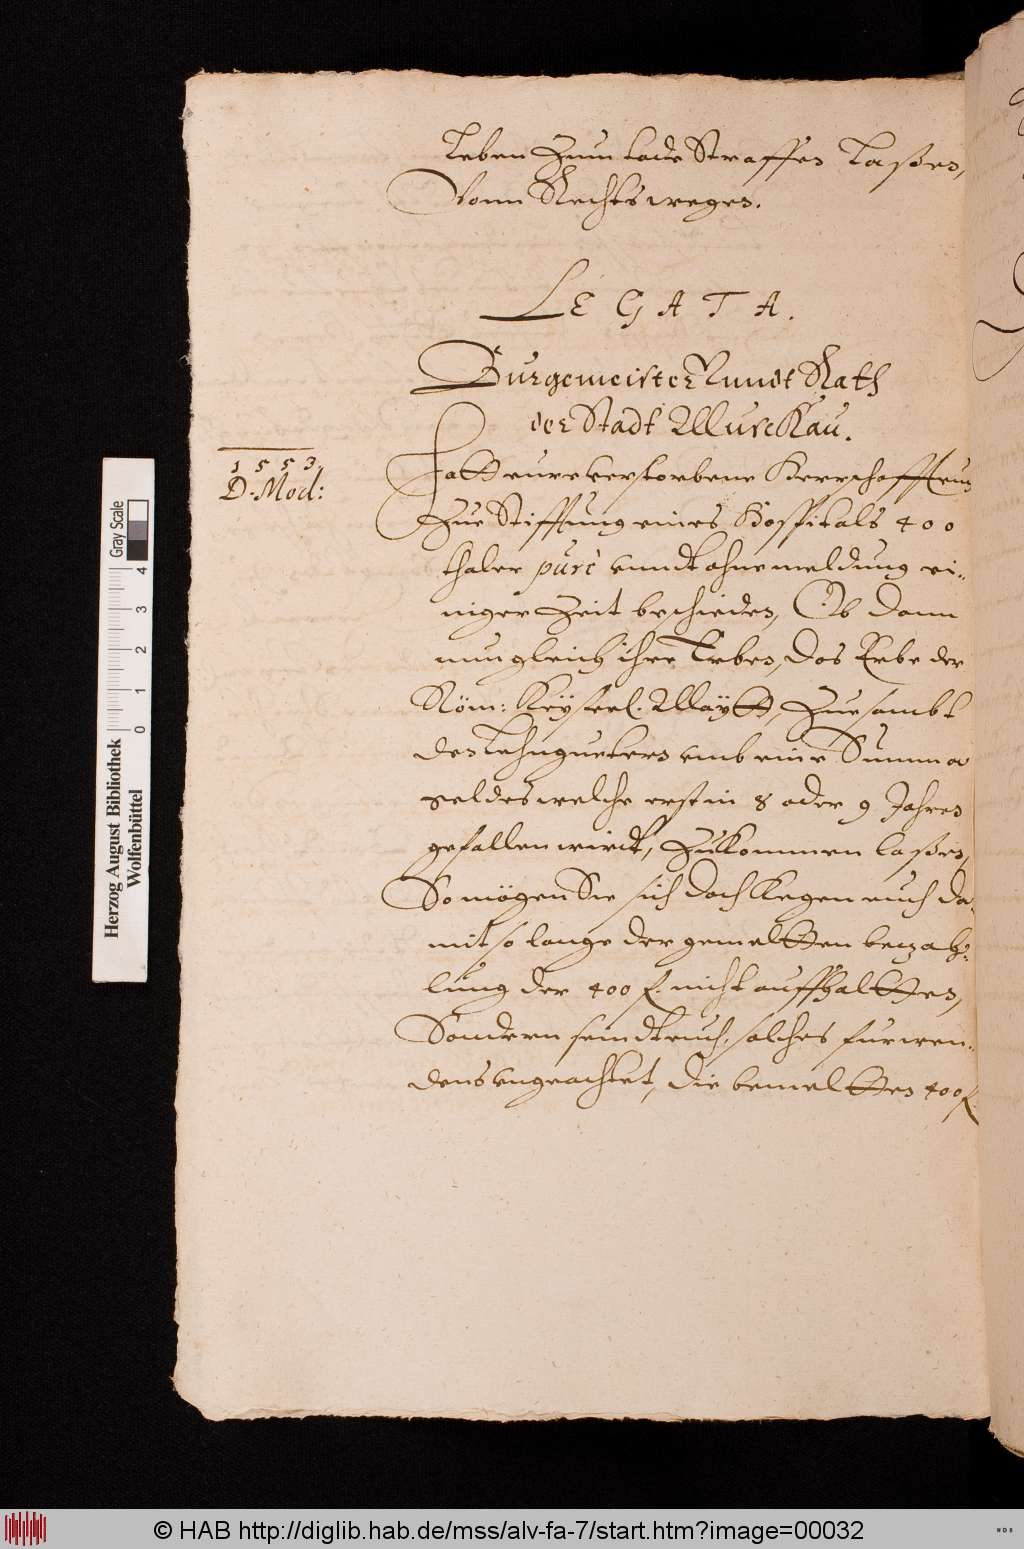 Leben Zum tode Straffen Laßen,
Vonn Rechts wegen.
LEGATA.
Burgemeister Unndt Rath
der Stadt Musckau.
1553.
D. Mod:
Hatt eure verstorbene Herrschafft euch
Zur Stifftung eines Hospitals 400
thaler pure vnndt ohne meldung ei-
niger Zeit beschieden, Ob dann
nun gleich ihre Erben, das Erbe der
Röm: Keyserl. Maytt, Zusambt
den Lehnguetern vmb eine Summa
geldes welche erst in 8 oder 9 Jahren
gefallen wirdt, Zukommen laßen,
So mögen Sie sich doch kegen euch da-
mit so lange der gemeltten bezah-
lung der 400 f. nicht auffhaltten,
Sondern seindt euch, solches furwen-
dens vngeachtet, die bemeltten 400 f.
Herzog August Bibliothek
Wolfenbüttel
Gray Scale
0 1 2 3 4
© HAB http://diglib.hab.de/mss/alv-fa-7/start.htm?image=00032